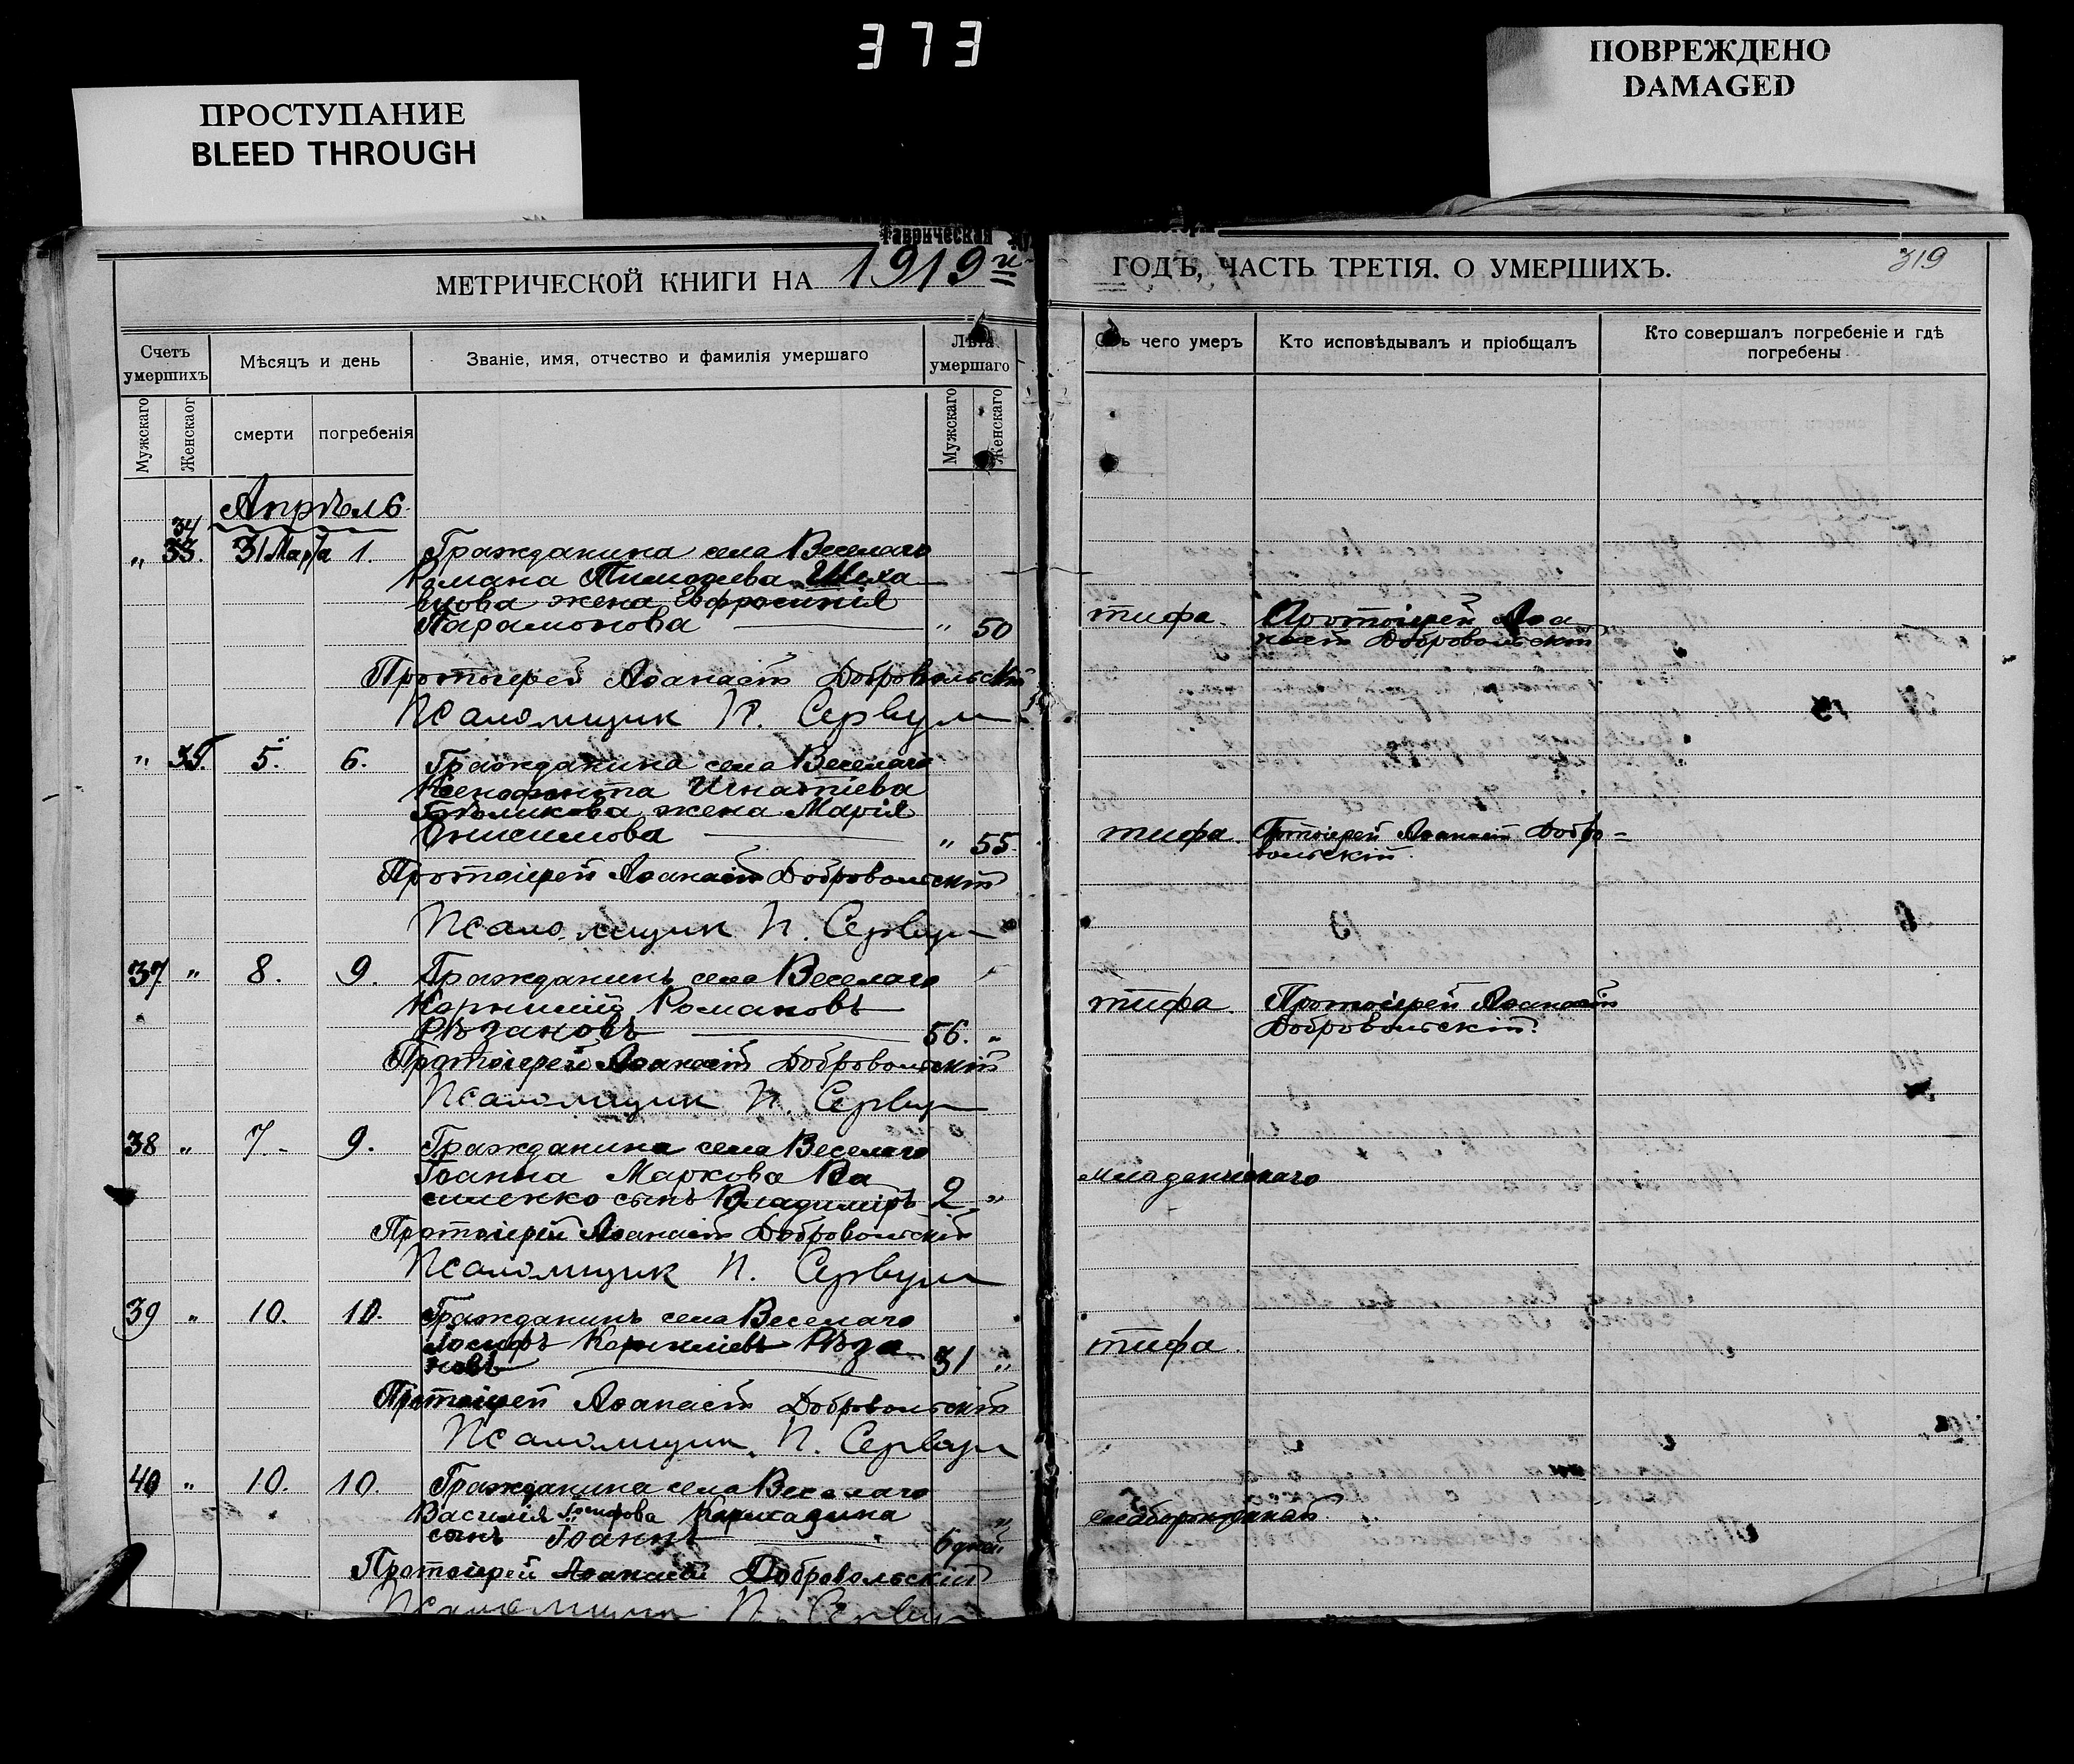 373
ПРОСТУПАНИЕ
BLEED THROUGH
ПОВРЕЖДЕНО
DAMAGED
Таврическая
МЕТРИЧЕСКОЙ КНИГИ НА 1919й
ГОДЪ, ЧАСТЬ ТРЕТІЯ. О УМЕРШИХЪ.
319
Счетъ умершихъ
Мѣсяцъ и день
Званіе, имя, отчество и фамилія умершаго
Лѣта умершаго
чего умеръ
Кто исповѣдывалъ и пріобщалъ
Кто совершалъ погребеніе и гдѣ погребены
Мужскаго
Женскаог
смерти
погребенія
Мужскаго
Женскаго
Апрѣль
34
„ 33. 31 Марта 1. Гражданина села Веселаго
Романа Тимофеева Шеха
вцова жена Евфросинія
Парамонова „ 50
тифа. Протоіерей Аѳа
насій Добровольскій
Протоіерей Аѳанасій Добровольскій
Псаломщик П. Сервул
„ 35. 5. 6. Гражданина села Веселаго
Ксенофонта Игнатіева
Бѣликова жена Марія
Онисимова „ 55.
тифа. Протоіерей Аѳанасій Добро-
вольскій.
Протоіерей Аѳанасій Добровольскій
Псаломщик П. Сервул
37. „ 8. 9. Гражданинъ села Веселаго
Корнилій Романовъ
Рѣзановъ 56. „
тифа. Протоіерей Аѳанасій
Добровольскій.
Протоіерей Аѳанасій Добровольскій
Псаломщик П. Сервул
38 „ 7. 9. Гражданина села Веселаго
Іоанна Маркова Ва
силенко сынъ Владиміръ 2 „
младенческаго
Протоіерей Аѳанасій Добровольскій
Псаломщик П. Сервул
39 „ 10. 10. Гражданинъ села Веселаго
Іосифъ Корниліевъ Рѣза
новъ 31 „
тифа.
Протоіерей Аѳанасій Добровольскій
Псаломщик П. Сервул
40 „ 10. 10. Гражданина села Веселаго
Василія Іосифова
сынъ Іоаннъ 6 дней „
Протоіерей Аѳанасій Добровольскій
Псаломщик П. Сервул